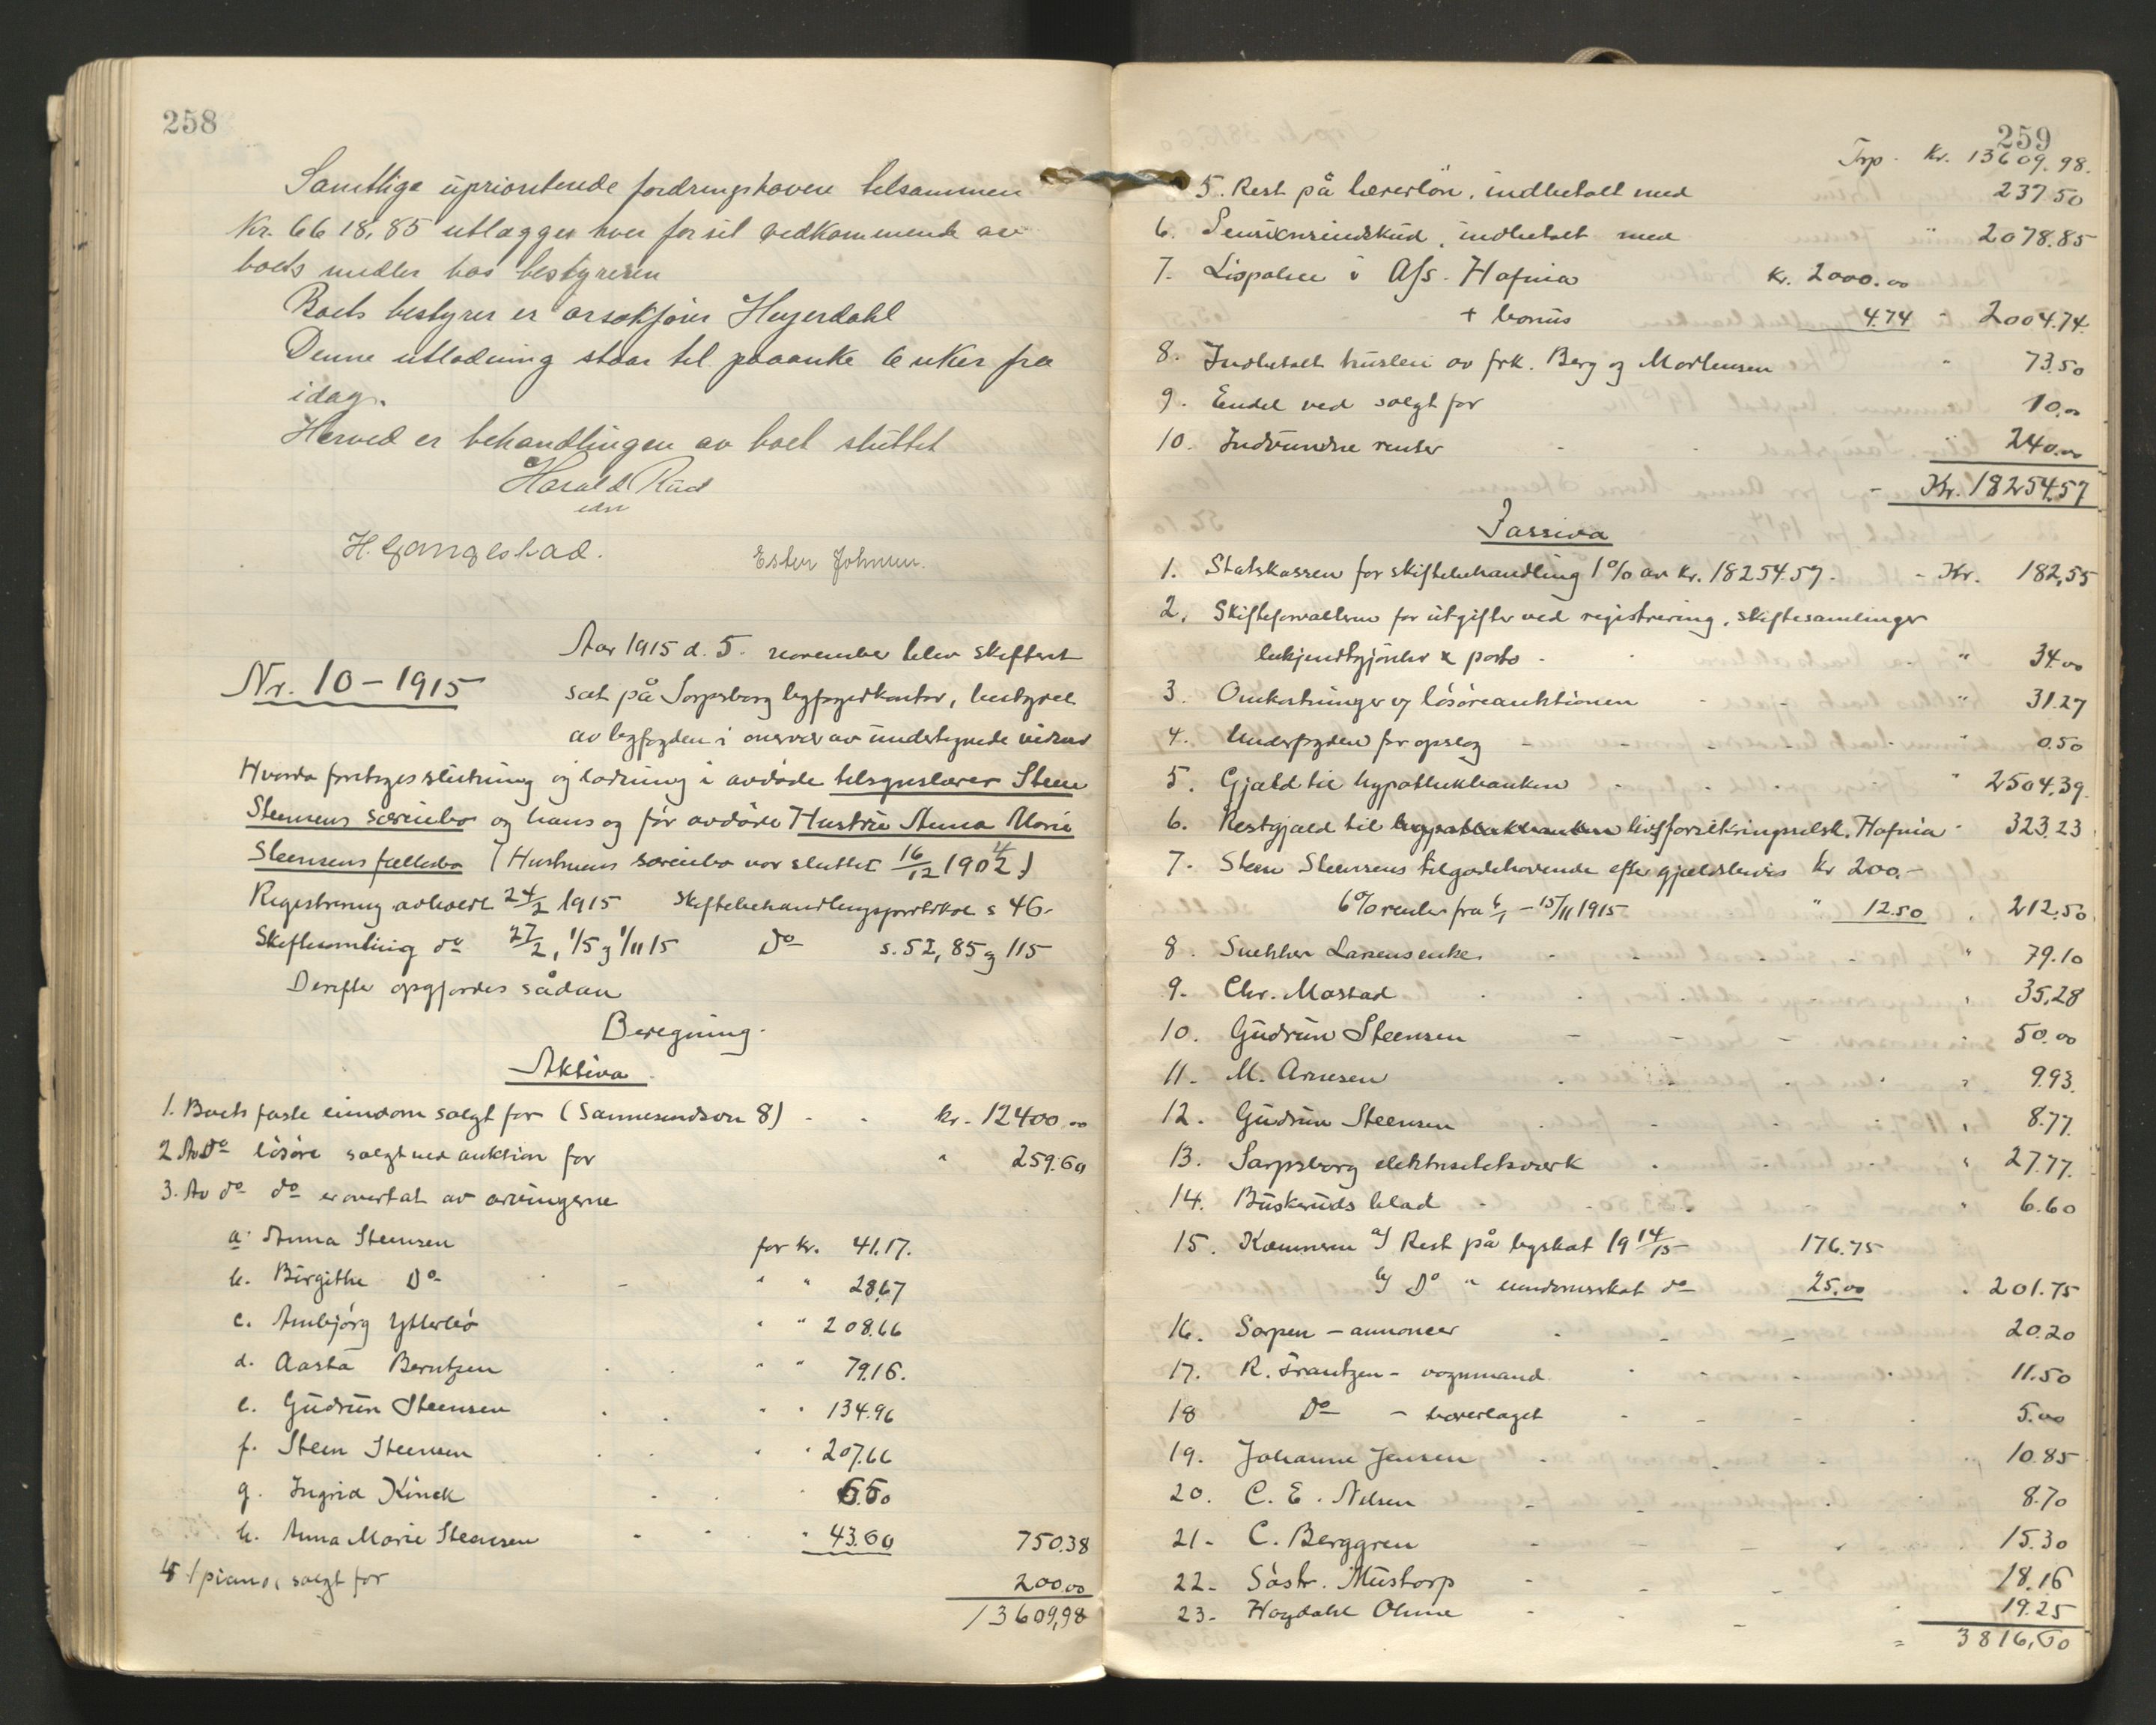 258
Samtlige uprioriterede fordringshavere tilsammen
Kr. 6618,85 utlægges hver for sit vedkommende av
boets midler hos bestyreren
Boets bestyrer er orsakfører Heyerdahl
Denne utlodning staar til paaanke 6 uker fra
idag.
Herved er behandlingen av boet sluttet
Harald Rud
H. Gangestad.
Ester Johnsen.
Nr. 10 - 1915
Aar 1915 d. 5. november blev skifteret
sat på Sarpsborg byfogedkontor, bestyret
av byfogden i overvær av undertegnede vidner
Hvorda foretoges slutning og lodning i avdøde telegraslærer Steen
Steensens særeiebo og hans og før avdøde Hustru Anna Marie
Steensens fællesbo (Hustruens særeiebo var sluttet 16/12 1902)
Registrering avholdt 24/2 1915 Skiftebehandlingsprotokol s 46.
Skiftesamling do 27/2, 1/5 og 1/11 15 Do s. 52, 85 og 115
Derefter opgjordes sådan
Beregning.
Aktiva.
1. Boets faste eiendom solgt for (Sannesundsvn 8) - - kr. 12400.00
2 Av Do løsøre solgt ved auktion for " 259.60
3. Av do do er overtat av arvingerne
a. Anna Steensen for kr. 41.17.
b. Birgithe Do - " " 28.67
c. Ambjörg Ytterbö " " 208.66
d. Aasta Berntzen " " 79.16.
e. Gudrun Steensen " " 134.96
f. Steen Steensen " " 207.66
g. Ingrid Kinck " 6.50
h. Anna Marie Steensen " 43.60 750.38
4 1 piano, solgt for 200.00
13609,98
259
Trp. Kr. 13609.98.
5. Rest på lærerlön, indbetalt med 237.50
6. indbetalt med " 2078.85
7. Livpolice i A/s. Hafnia kr. 2000.00
+ bonus 4.74 " 2004.74.
8. Indbetalt husleie av frk. Berg og Mortensen " 73.50
9. Endel ved solgt for 10.00
10. Indvundne renter - - " 240.00
- Kr. 18254.57
Passiva
1. Statskassen for skiftebehandling 1% av kr. 18254.57. - Kr. 182,55
2. Skifteforvalteren for utgifter ved registrering, skiftesamlinger
bekjendtgjörelser & porto - " 34.00
3. Omkostninger v/ lösöreauktionen " 31.27
4. Underfogden for opslag - - " 0.50
5. Gjæld til hypothekbanken " 2504.39.
6. Restgjæld til livsforsikringsselsk. Hafnia " 323.23
7. Steen Steensens tilgodehavende efter gjældsbevis kr 200.-
6% renter fra 6/1 - 15/11 1915 " 12.50 " 212.50
8. Snekker Larsens enke. " 79.10
9. Chr. Mastad " 35,28
10. Gudrun Steensen - - 50.00
11. M. Arnesen " 9.93.
12. Gudrun Steensen " 8.77.
13. Sarpsborg elektricitetsværk " 27.77.
14. Buskeruds blad " 6.60
15. Kæmneren a/ Rest på byskat 19 14/15 176.75
b/ Do " eiendomsskat do 25.00 " 201.75
16. Sarpen - annoncer - - 20.20
17. R. Frantzen - vognmand. 11.50
18 Do - - - 5.00
19. Johanne Jensen 10.85
20. C. E. Nilsen - 8.70
21. C. Berggren - - 15.30
22. Søstr. Mustorp - - 18.16
23. Hogdahl Ohme - 19.25
= 3816,60